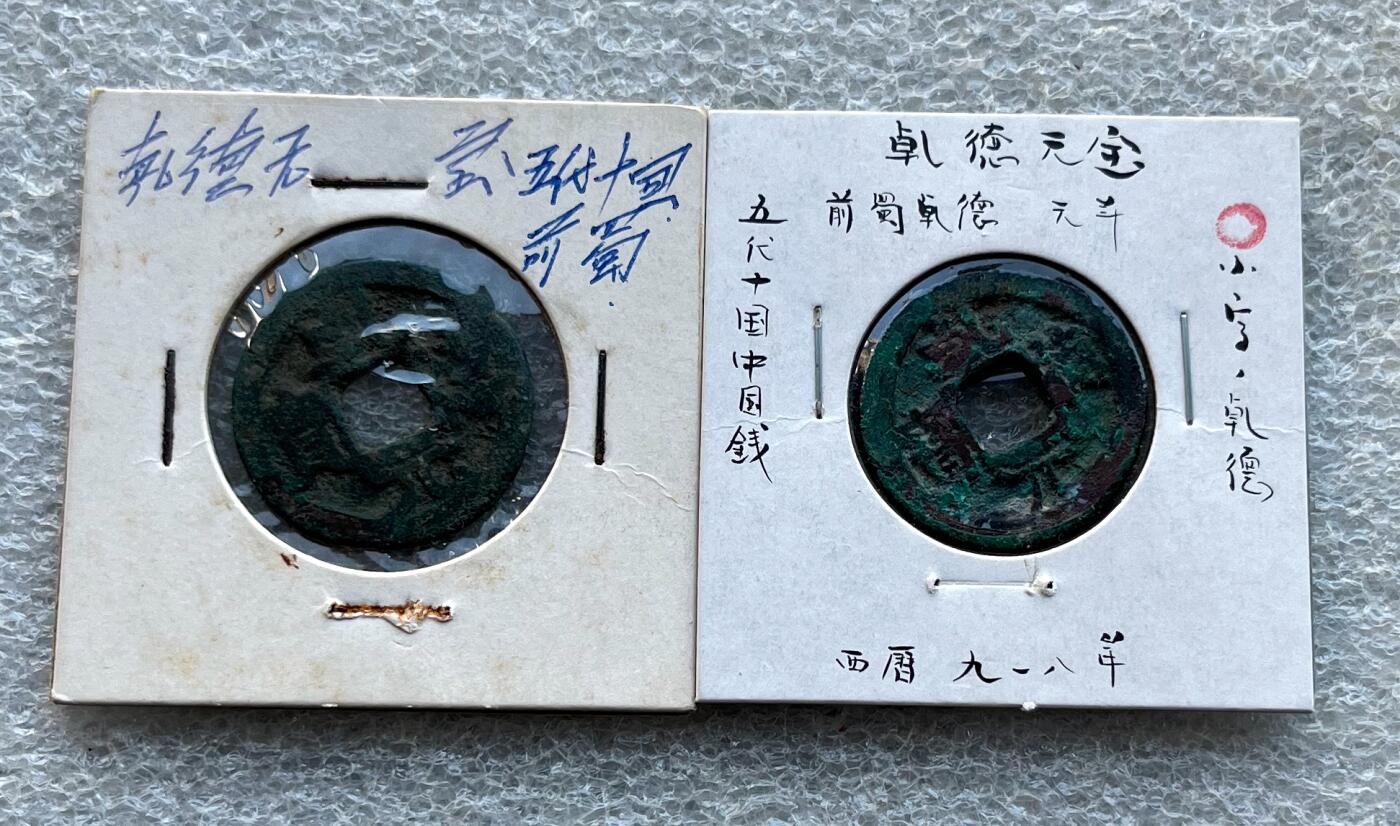 乾德元宝五代十国
前蜀
乾德元宝
前蜀乾德 元年
五代十国中国銭
小字、乾德
西暦九一八年